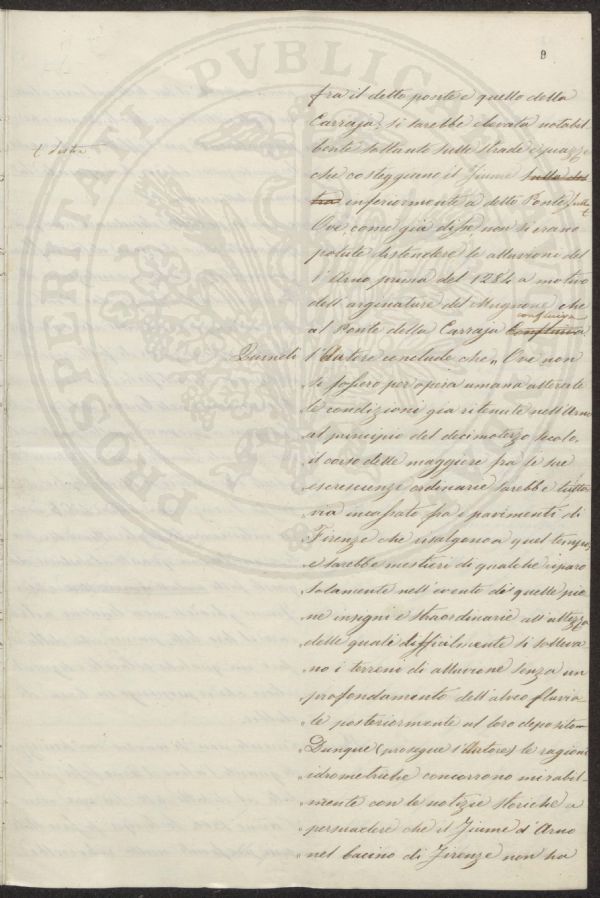 9
fra il detto ponte e quello della
Carraja, si sarebbe elevata notabil-
mente soltanto sulle strade e piazze
che costeggiano il fiume sulla des
tra inferiormente a detto Ponte,
Ove come già disse non si erano
potute distendere le alluvioni del
l'Arno prima del 1284 a motivo
dell'arginature del Mugnone che
confluiva
al Ponte della Carraja
Quindi l'Autore conclude che „ Ove non
„ si fossero per opera umana alterate
„ le condizioni già ritenute nell'Arno
„ al principio del decimoterzo secolo,
„ il corso delle maggiore fra le sue
„ escrescienze ordinarie sarebbe tutto
„ via incassato fra i pavimenti di
„ Firenze che risalgono a quel tempo,
„ e sarebbe mestieri di qualche riparo
„ solamente nell'evento di quelle pie
„ ne insigni e straordinarie all'altezza
„ delle quali difficilmente si solleva
„ no i terreni di alluvione senza un
„ profondamento dell'alveo fluvia
„ le posteriormente al loro deposito „
„ Dunque (prosegue l'Autore) le ragioni
„ idrometriche concorrono mirabil-
„ mente con le notizie storiche a
„ persuadere che il fiume d'Arno
„ nel bacino di Firenze non ha
PROSPERITATI PVBLICAE